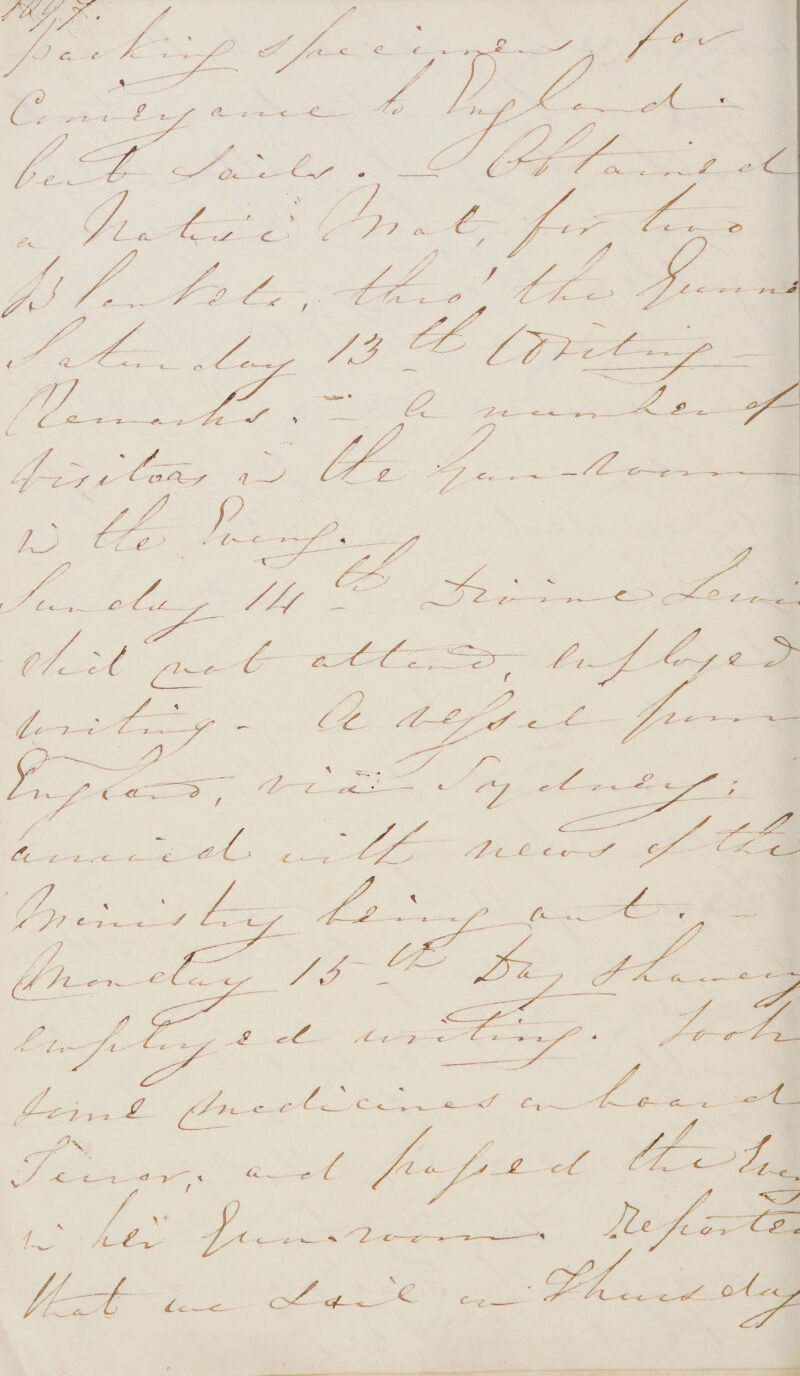 packing specimens for
Conveyance to England.
bent Sails. — Obtained
a Native Mat, for two
Blankets, thro' the Gunn
Saturday 13th Writing
Remarks. — A number of
visitors in the Gun-room
in the Eveng.
Sunday 14th Divine Servi
did not attend, employed
writing - A vessel from
England, via Sydney;
arrived with news of the
Ministry being out. —
Monday 15th Day Showery
employed writing. Took
some medicines on board
Terror, and passed the Eve
in her Gun-room. Reporte
that we sail on Thursday